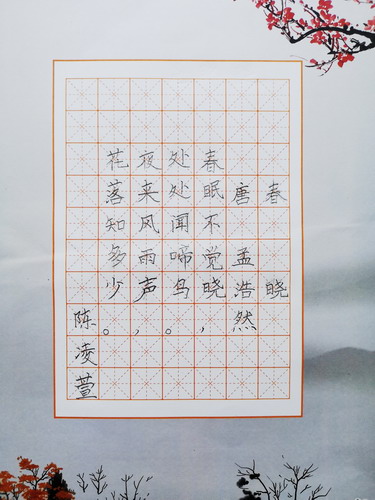 春晓
唐孟浩然
春眠不觉晓，
处处闻啼鸟。
夜来风雨声，
花落知多少。
陈凌萱